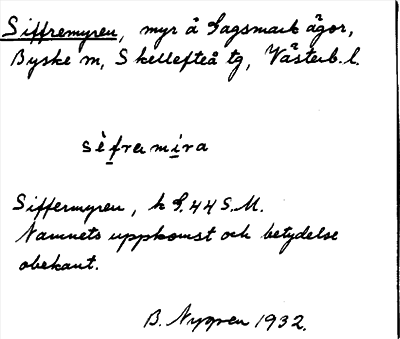 Siffremyren, myr å Gagsmark ägor,
Byske m, Skellefteå tg, Västerb. l.
sèfrɐmira
Siffermyren, k G.44 S.M.
Namnets uppkomst och betydelse
obekant.
B. Nygren 1932.